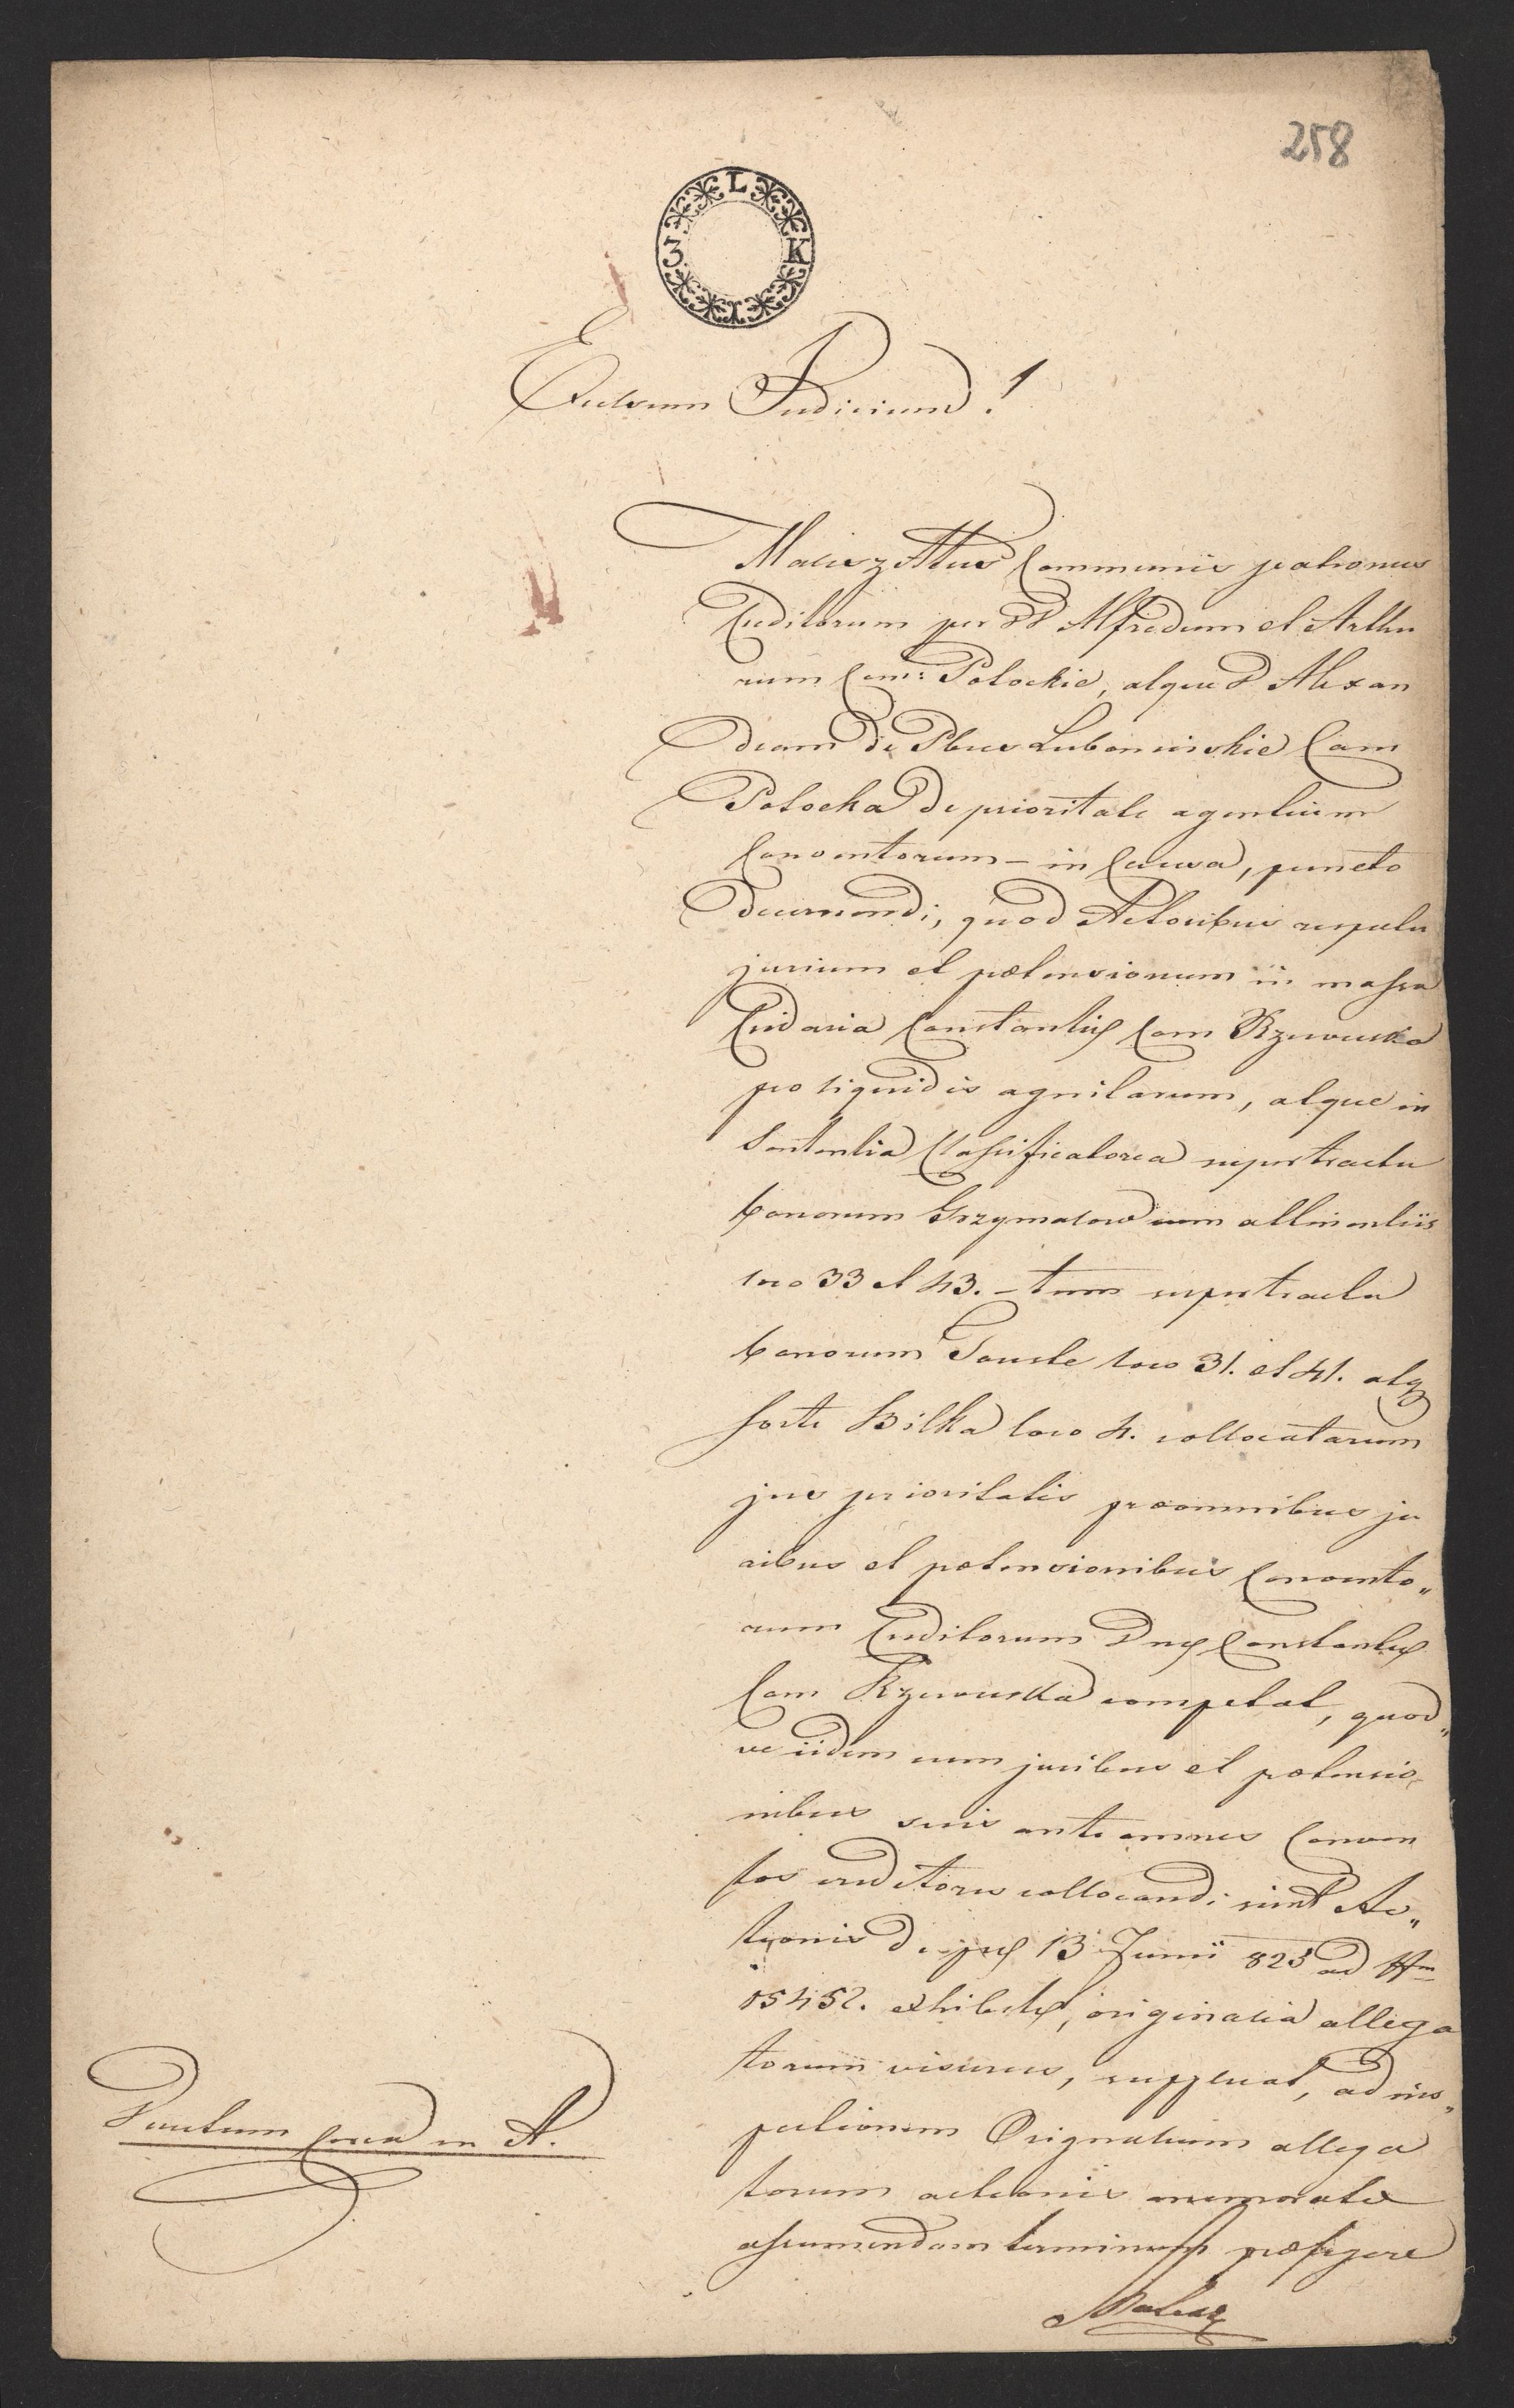 258
L
3 K
X
Excelsum Judicium!
Maciesz Attus Communis patronus
Creditorum per DD Alfredum et Arthu
rum Com: Potockie, atque D Alexan
dram de Pbus Lubomirskie Com
Potocka de prioritate agentium
Conventorum – in Causa, puncto
decernendi, quod Actoribus respectu
jurium et prætensionum in massa
Cridaria Constantiæ Com Rzewuska
pro liquidis agnitarum, atque in
Sententia Classificatorea respectu tractu
bonorum Grzymalow cum attinentiis
loco 33 et 43. – tum respectu tractu
bonorum Touste loco 31. et 41. atq
sorte Bilka loco 4. collocatarum
jus prioritatis præ omnibus ju
ribus et prætensionibus Convento„
rum Creditorum Dnæ Constantiæ
Com Rzewuska competat, quod„
ve iidem cum juribus et prætensio„
nibus suis ante omnes Conven
tos creditores collocandi sint Ac„
tionis de præs 13 Junii 823 ad Nm
15452. exhibitæ, originalia allega
torum visurus, supplicat, ad ins„
pectionem Originalium allega
torum actionis memoratæ
assumendam terminum præfigere